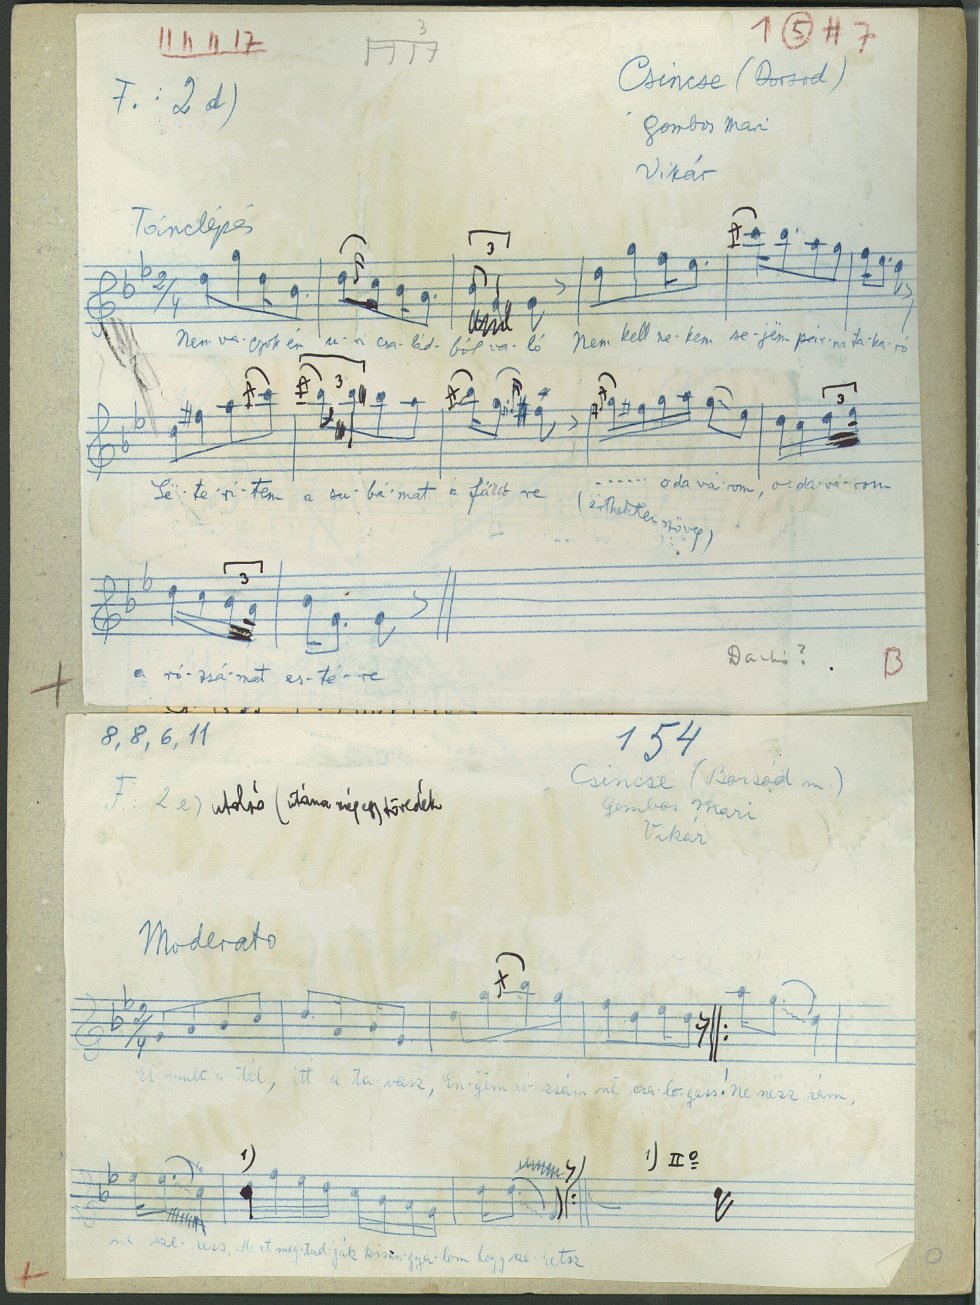 1 5 # 7
3
F. : 2 d)
Csincse (Borsod)
Gombos Mari
Vikár
Tánclépés
2/4
3
Nem va-gyok én u-ri csa-lád-ból va-ló Nem kell ne-kem se-jëm pár-na ta-ka-ró
3
3
Lë-te-rí-tem a su-bá-mat a föld-re ...... oda vá-rom, o-da-vá-rom
(érthetetlen szöveg)
3
a ró-zsá-mat es-té-re
Dankó?
B
8, 8, 6, 11
154
F. : 2 e) utolsó (utána még egy töredék
Csincse (Borsod m.)
Gombos Mari
Vikár
Moderato
2/4
El-mult a tél, itt a ta-vasz, En-gëm ró-zsám në csa-lo-gass! Ne nézz rám,
1)
1) IIo
ne sze-ress, Mert meg-tud-ják kisan-gya-lom hogy sze-retsz.